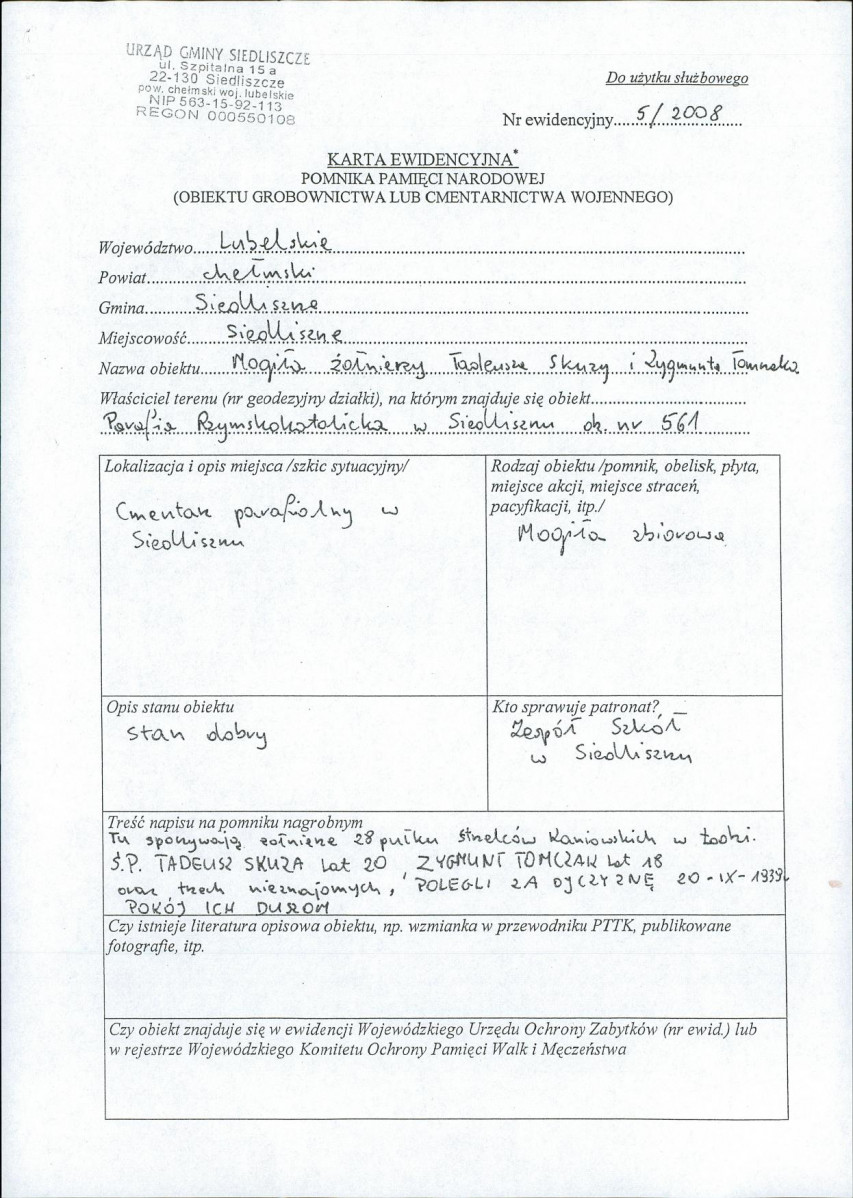 URZĄD GMINY SIEDLISZCZE
ul. Szpitalna 15 a
22-130 Siedliszcze
pow. chełmski woj. lubelskie
NIP 563-15-92-113
REGON 000550108
Do użytku służbowego
Nr ewidencyjny....5/2008....
KARTA EWIDENCYJNA*
POMNIKA PAMIĘCI NARODOWEJ
(OBIEKTU GROBOWNICTWA LUB CMENTARNICTWA WOJENNEGO)
Województwo....Lubelskie....
Powiat....chełmski....
Gmina....Siedliszcze....
Miejscowość....Siedliszcze....
Nazwa obiektu....Mogiła żołnierzy Tadeusza Skuzy i Zygmunta Tomczaka
Właściciel terenu (nr geodezyjny działki), na którym znajduje się obiekt....
Parafia Rzymskokatolicka w Siedliszczu dz. nr 561
Lokalizacja i opis miejsca /szkic sytuacyjny/
Cmentarz parafialny w
Siedliszczu
Rodzaj obiektu /pomnik, obelisk, płyta,
miejsce akcji, miejsce straceń,
pacyfikacji, itp./
Mogiła zbiorowa
Opis stanu obiektu
stan dobry
Kto sprawuje patronat?
Zespół Szkół
w Siedliszczu
Treść napisu na pomniku nagrobnym
Tu spoczywają żołnierze 28 pułku strzelców Kaniowskich w Łodzi.
Ś.P. TADEUSZ SKUZA Lat 20 ZYGMUNT TOMCZAK Lat 18
oraz trzech nieznajomych, POLEGLI ZA OJCZYZNĘ 20-IX-1939r.
POKÓJ ICH DUSZOM
Czy istnieje literatura opisowa obiektu, np. wzmianka w przewodniku PTTK, publikowane
fotografie, itp.
Czy obiekt znajduje się w ewidencji Wojewódzkiego Urzędu Ochrony Zabytków (nr ewid.) lub
w rejestrze Wojewódzkiego Komitetu Ochrony Pamięci Walk i Męczeństwa